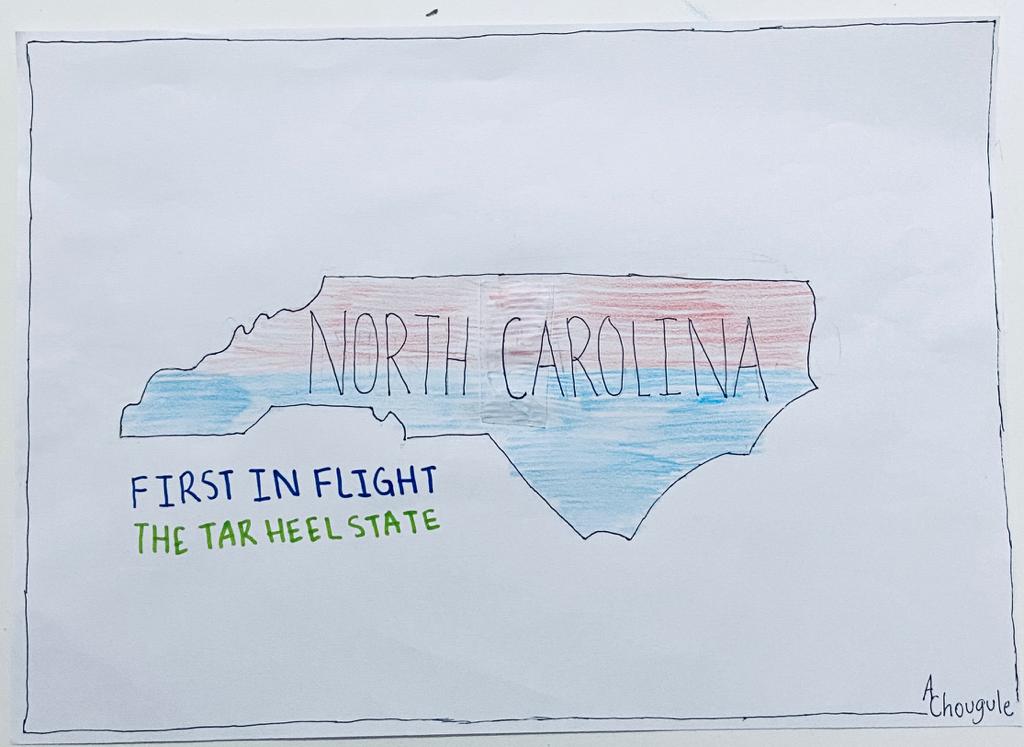 NORTH CAROLINA
FIRST IN FLIGHT
THE TAR HEEL STATE
A
Chougule